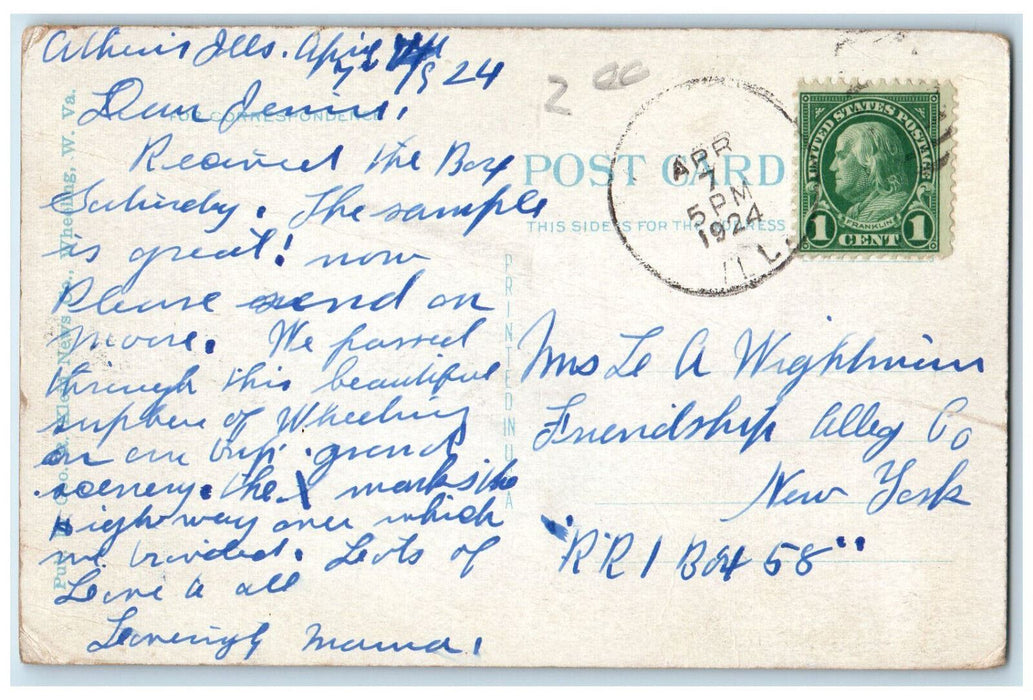 Athens Ills. April 7th 1924
Dear Jennie,
FOR CORRESPONDENCE
Received the Box
Saturday. The sample
is great! now
Please send on
more. We passed
through this beautiful
suburb of Wheeling
on our trip. grand
scenery. the X marks the
Highway over which
we traveled. Lots of
Love to all
Lovingly Mama.
Wheeling, W. Va.
PRINTED IN U S A
2 00
POST CARD
THIS SIDE IS FOR THE ADDRESS
APR
7
5 PM
1924
ILL.
UNITED STATES POSTAGE
FRANKLIN
1 CENT 1
Mrs Le A Wightman
Friendship Alleg Co
New York
"RR 1 Box 58"